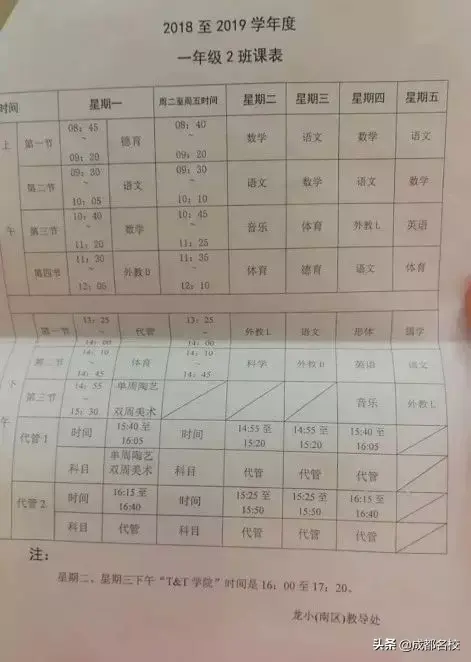 2018 至 2019 学年度
一年级 2 班课表
时间 星期一 周二至周五时间 星期二 星期三 星期四 星期五
上午 第一节 08：45 ~ 09：20 德育 08：40 ~ 09：20 数学 语文 数学 语文
第二节 09：30 ~ 10：05 语文 09：30 ~ 10：10 语文 数学 语文 数学
第三节 10：40 ~ 11：20 数学 10：45 ~ 11：25 音乐 体育 外教L 英语
第四节 11：30 ~ 12：05 外教D 11：35 ~ 12：10 体育 德育 语文 体育
下午 第一节 13：25 ~ 14：00 代管 13：25 ~ 14：00 外教L 语文 形体 国学
第二节 14：10 ~ 14：45 体育 14：10 ~ 14：45 科学 外教D 英语 语文
第三节 14：55 ~ 15：30 单周陶艺 双周美术 音乐 外教L
代管1 时间 15:40 至 16:05 时间 14:55 至 15:20 14:55 至 15:20 15:40 至 16:05
科目 单周陶艺 双周美术 科目 代管 代管 代管
代管2 时间 16:15 至 16:40 时间 15:25 至 15:50 15:25 至 15:50 16:15 至 16:40
科目 代管 科目 代管 代管 代管
注：
星期二、星期三下午“T&T 学院”时间是 16：00 至 17：20。
龙小(南区)教导处
头条 @成都名校